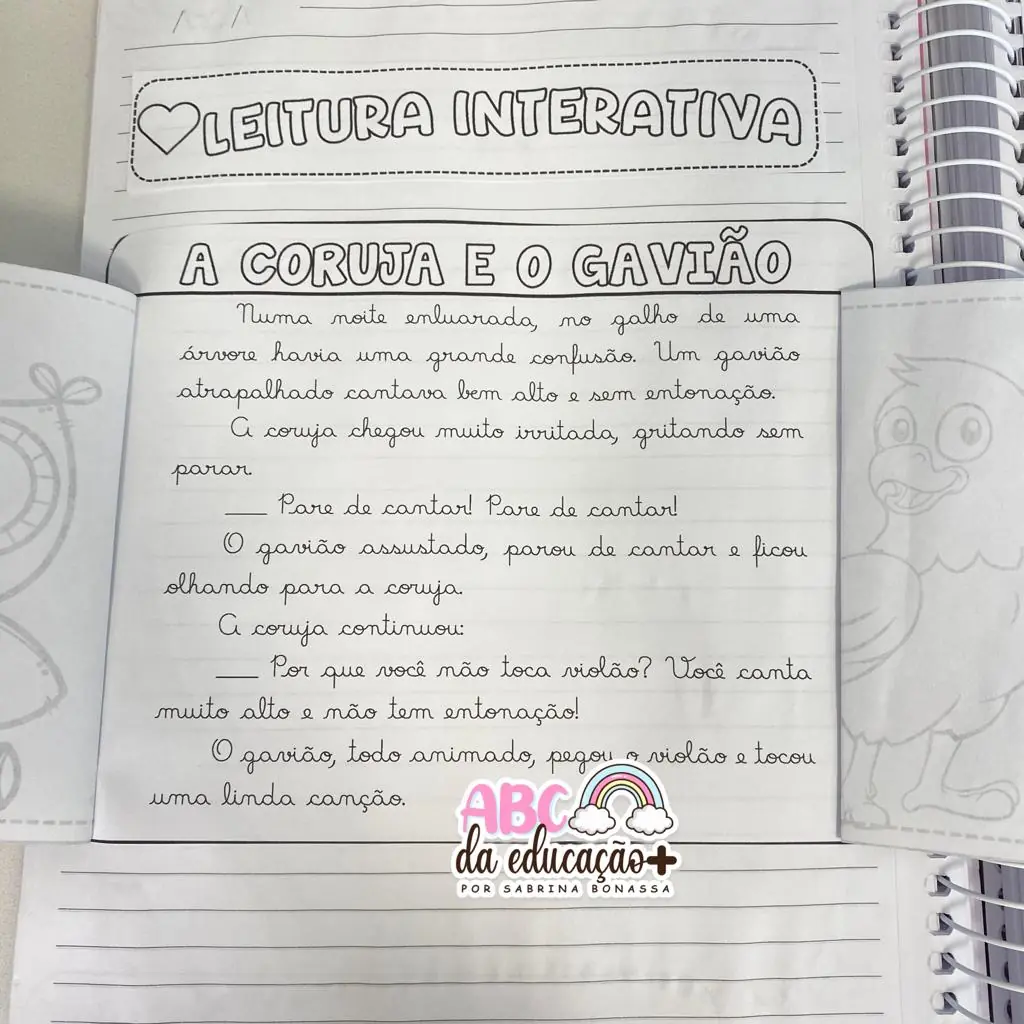 LEITURA INTERATIVA
A CORUJA E O GAVIÃO
Numa noite enluarada, no galho de uma
árvore havia uma grande confusão. Um gavião
atrapalhado cantava bem alto e sem entonação.
A coruja chegou muito irritada, gritando sem
parar.
___ Pare de cantar! Pare de cantar!
O gavião assustado, parou de cantar e ficou
olhando para a coruja.
A coruja continuou:
___ Por que você não toca violão? Você canta
muito alto e não tem entonação!
O gavião, todo animado, pegou o violão e tocou
uma linda canção.
ABC
da educação+
POR SABRINA BONASSA